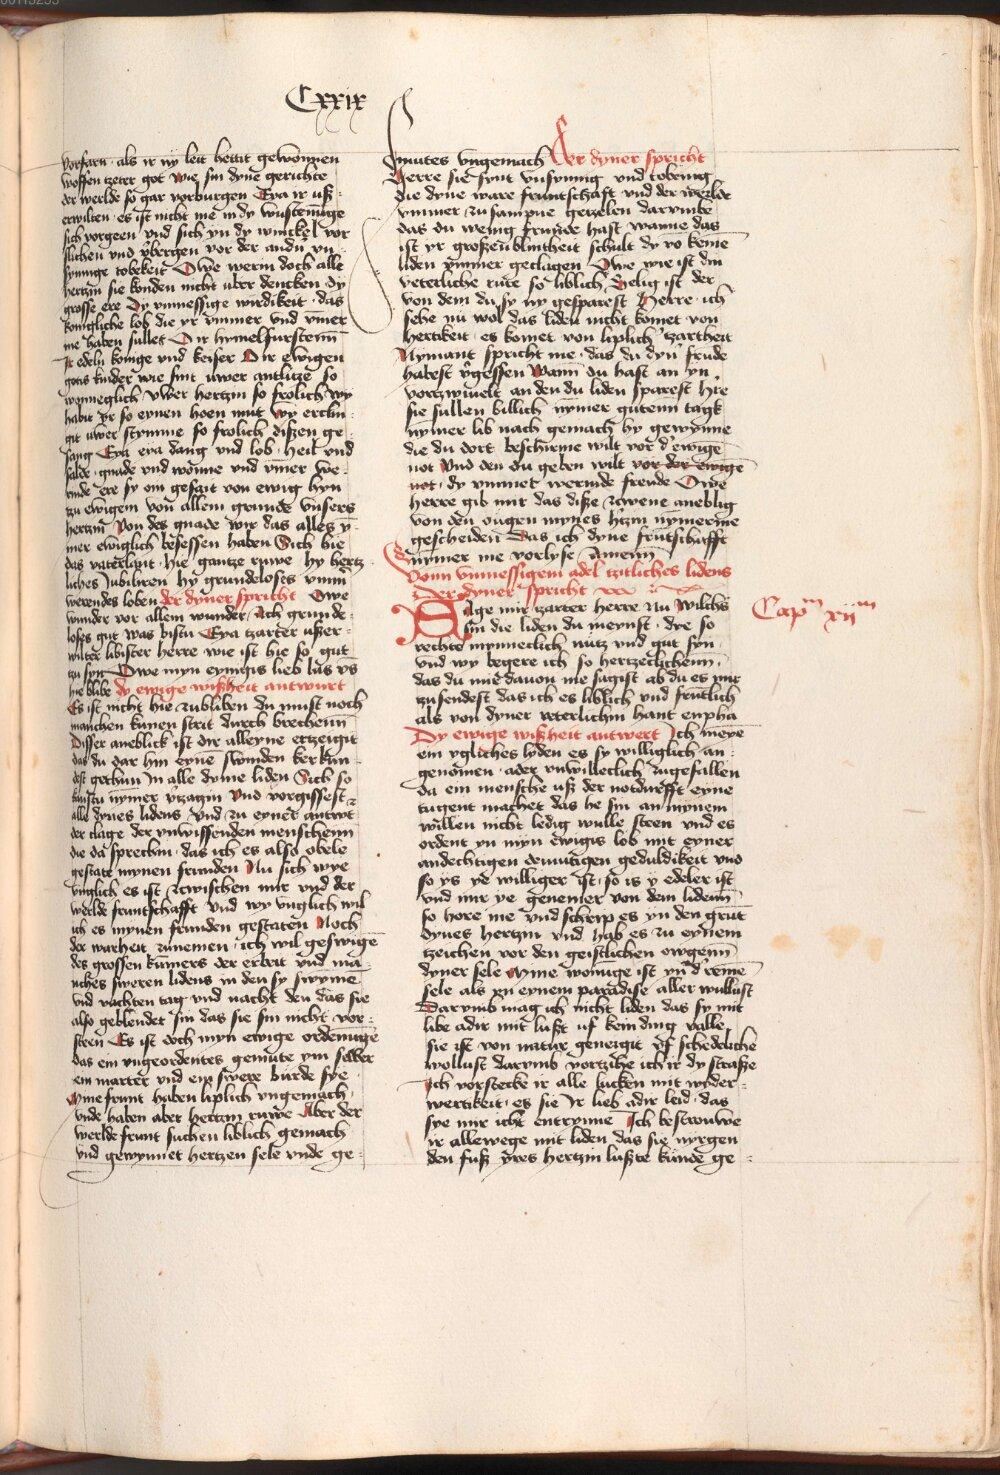 Cxxix
vorfarn · als ir ny leit hettit gewonnen
woffen tzeter got wie sin dyne gerichte
der werlde so gar vorburgen Eya ir uß-
erwilten · es ist nicht me in dy wustenunge
sich vorgeen vnd sich yn dy winckel vor
slichen vnd vbergen vor der andn vn-
synnige tobekeit Owe wenn doch alle
hertzin sie konden nicht uber dencken dy
grosse ere Dy vnmessige wirdikeit · das
konigliche lob die yr vmmer vnd vmer
me haben sullet O ir hymelfurstenn
Ir edeln konige vnd keiser O ir ewigen
gotis kinder wie sint uwer antlitze so
wonneglich vwer hertzin so frolich wy
habit yr so eynen hoen mut wy erclin-
git uwer stymme so frolich dißen ge-
sang Eya eya dang vnd lob · heil vnd
salde · gnade vnd wonne vnd vmer we-
rnde ere sy om gesait von ewig hyn
tzu ewigem von allem grunde vnsers
hertzin Von des gnade wir das alles y-
mer ewiglich besessen haben Sich hie
das vaterlant · hie gantze ruwe hy hertz-
liches Jubiliren hy grundeloses vmm-
werendes loben der dyner spricht Owe
wunder vor allem wunder Ach grunde-
loses gut was bistu Eya tzarter ußer-
wilter libister herre wie ist hie so gut
tzu syn Owe myn eynigis lieb las vs
hie blibe dy ewige wißheit antwurt
Es ist nicht hie zubliben du must noch
manchen kunen strit durch brechenn
Disser aneblick ist dir alleyne ertzeigit
das du dar hin eyne swinden kerkun-
dest gethun In alle dyme liden Sich so
kanstu nymer vtzagin Vnd vorgissest
alle dynes lidens Vnd zu eyner antwt
der clage der vnwissenden menschenn
die da sprechin · das ich es also obele
gestate mynen frunden Nu sich wye
vnglich es ist zcwischen mir vnd der
werlde fruntschafft vnd wy vnglich wil
ich es mynen frunden gestaten Noch
der warheit zunemen · ich wil geswige
des grossen kumers der erbeit vnd ma-
nches sweren lidens in den sy swyme
vnd wachten tag vnd nacht den das sie
also geblendet sin das sie sin nicht vor-
steen Es ist doch myn ewige ordenunge
das ein vngeordentes gemute ym selber
ein marter vnd ein swere burde sye
Myne frunt haben liplich vngemach ·
vnde haben aber hertzin ruwe Aber der
werlde frunt suchen liblich gemach
vnd gewynnet hertzen sele vnde ge-
mutes vngemach Der dyner spricht
Herre sie synt vnsynnig vnd tobening
die dyne ware fruntschaft vnd der werlde
vmmer zu sampne getzelen darumbe
das du wenig frunde hast wanne das
ist yr großen blintheit schult dy vo keine
liden ymmer geclagen Owe wie ist din
veterliche rute so liblich Selig ist der
von dem du sy ny gesparest Herre · ich
sehe nu wol das liden nicht komet von
hertikeit · es komet von liplich tzartheit
Nymant spricht me · das du dyn frude
habest vgessen Wann du hast an yn
vortzwiuelt an den du liden sparest hie
sie sullen billich nymer gutenn tagk
nymer lib nach gemach hy gewynne
die du dort beschirme wilt vor d ewige
not Vnd den du geben wilt vor der ewige
not · dy vmmer wernde freude Owe
herre gib mir das diße zcwene aneblig
von den ougen mynes htzin nymerme
gescheiden Das ich dyne fruntschafft
nymer me vorlyse Amenn
Vonn vnmessigem adel tzitliches lidens
Der dyner spricht
Sage mir tzarter herre Nu wilchs
sin die liden du meynst · dye so
rechte mynneclich nutz vnd gut syn ·
vnd wy begere ich so hertzeclichenn ·
das du mir dauon me sagist ab du es mir
zusendest das ich es liblich vnd fruntlich
als von dyner veterlichin hant enpha
Dy ewige wißheit antwert Ich meye
ein ygliches lyden es sy williglich an-
genomen · ader vnwilleclich zugefallen
da ein mensche uß der notdurfft eyne
tugent machet das he sin an mynem
willen nicht ledig wulle steen vnd es
ordent yn myn ewigis lob mit eyner
andechtigen demutigen geduldikeit vnd
so ys ye williger ist · so is y edeler ist
vnd mir ye genemer von dem lidenn
so hore me vnd schrip es yn den grut
dynes hertzin vnd hab es zu eynem
tzeichen vor den geistlichen owgenn
dyner sele Myne wonuge ist yn d reine
sele als yn eynem paradise aller wullust
Darumb mag ich nicht liden das sy mit
libe adir mit lußt uf kein ding valle
sie ist von natur geneigit vf schedeliche
wollust darumb vortzihe ich ir dy straße
Ich vorstecke ir alle lucken mit wyder-
wertikeit · es sie Ir lieb adir leid · das
sye mir icht entrynne Ich bestrouwe
ir allewege mit liden das sie nyrgen
den fuß yres hertzin lußte kunde ge-
Capm xiim